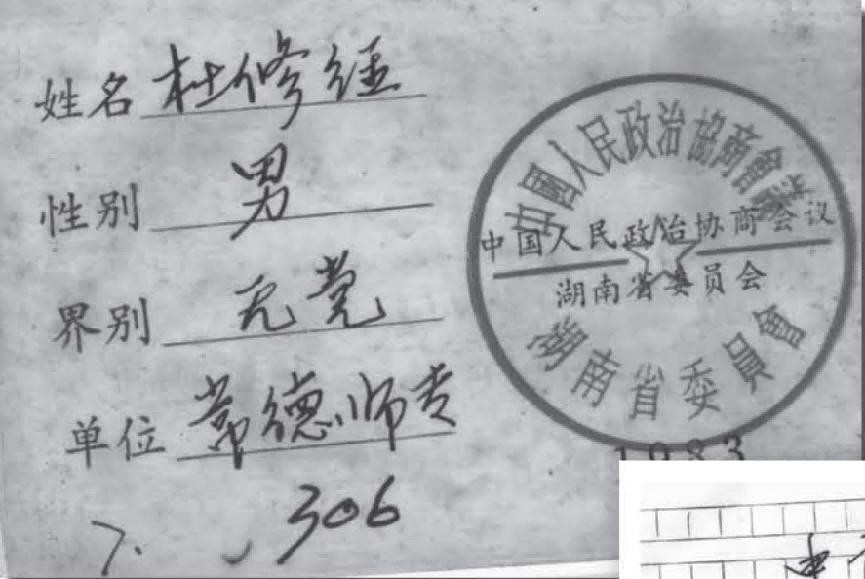 姓名 杜修经
性别 男
界别 无党
单位 常德师专
306
中國人民政治協商會議
中国人民政治协商会议
湖南省委员会
湖南省委員會
1983